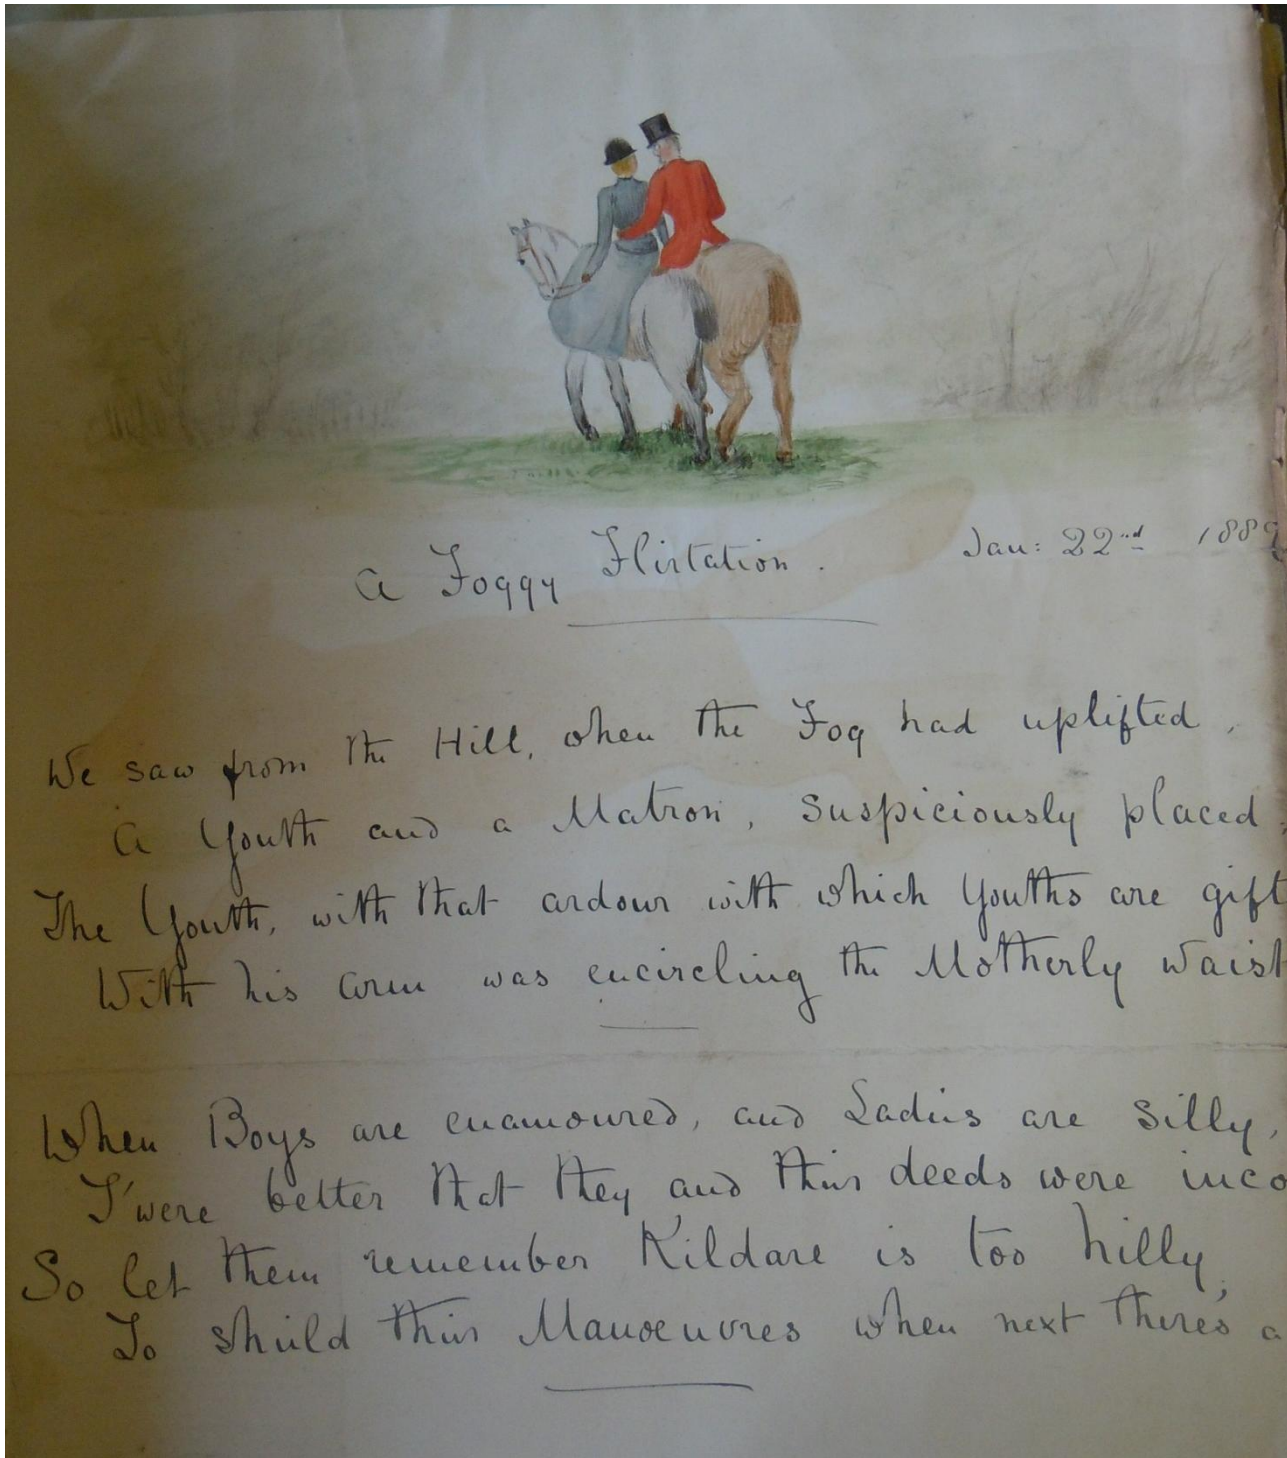 A Foggy Flirtation. Jan: 22nd 1889
We saw from the Hill, when the Fog had uplifted,
A Youth and a Matron, suspiciously placed;
The Youth, with that ardour with which Youths are gift
With his arm was encircling the Motherly waist
When Boys are enamoured, and Ladies are silly,
T'were better that they and their deeds were inco
So let them remember Kildare is too hilly,
To shield their Manoeuvres when next there's a